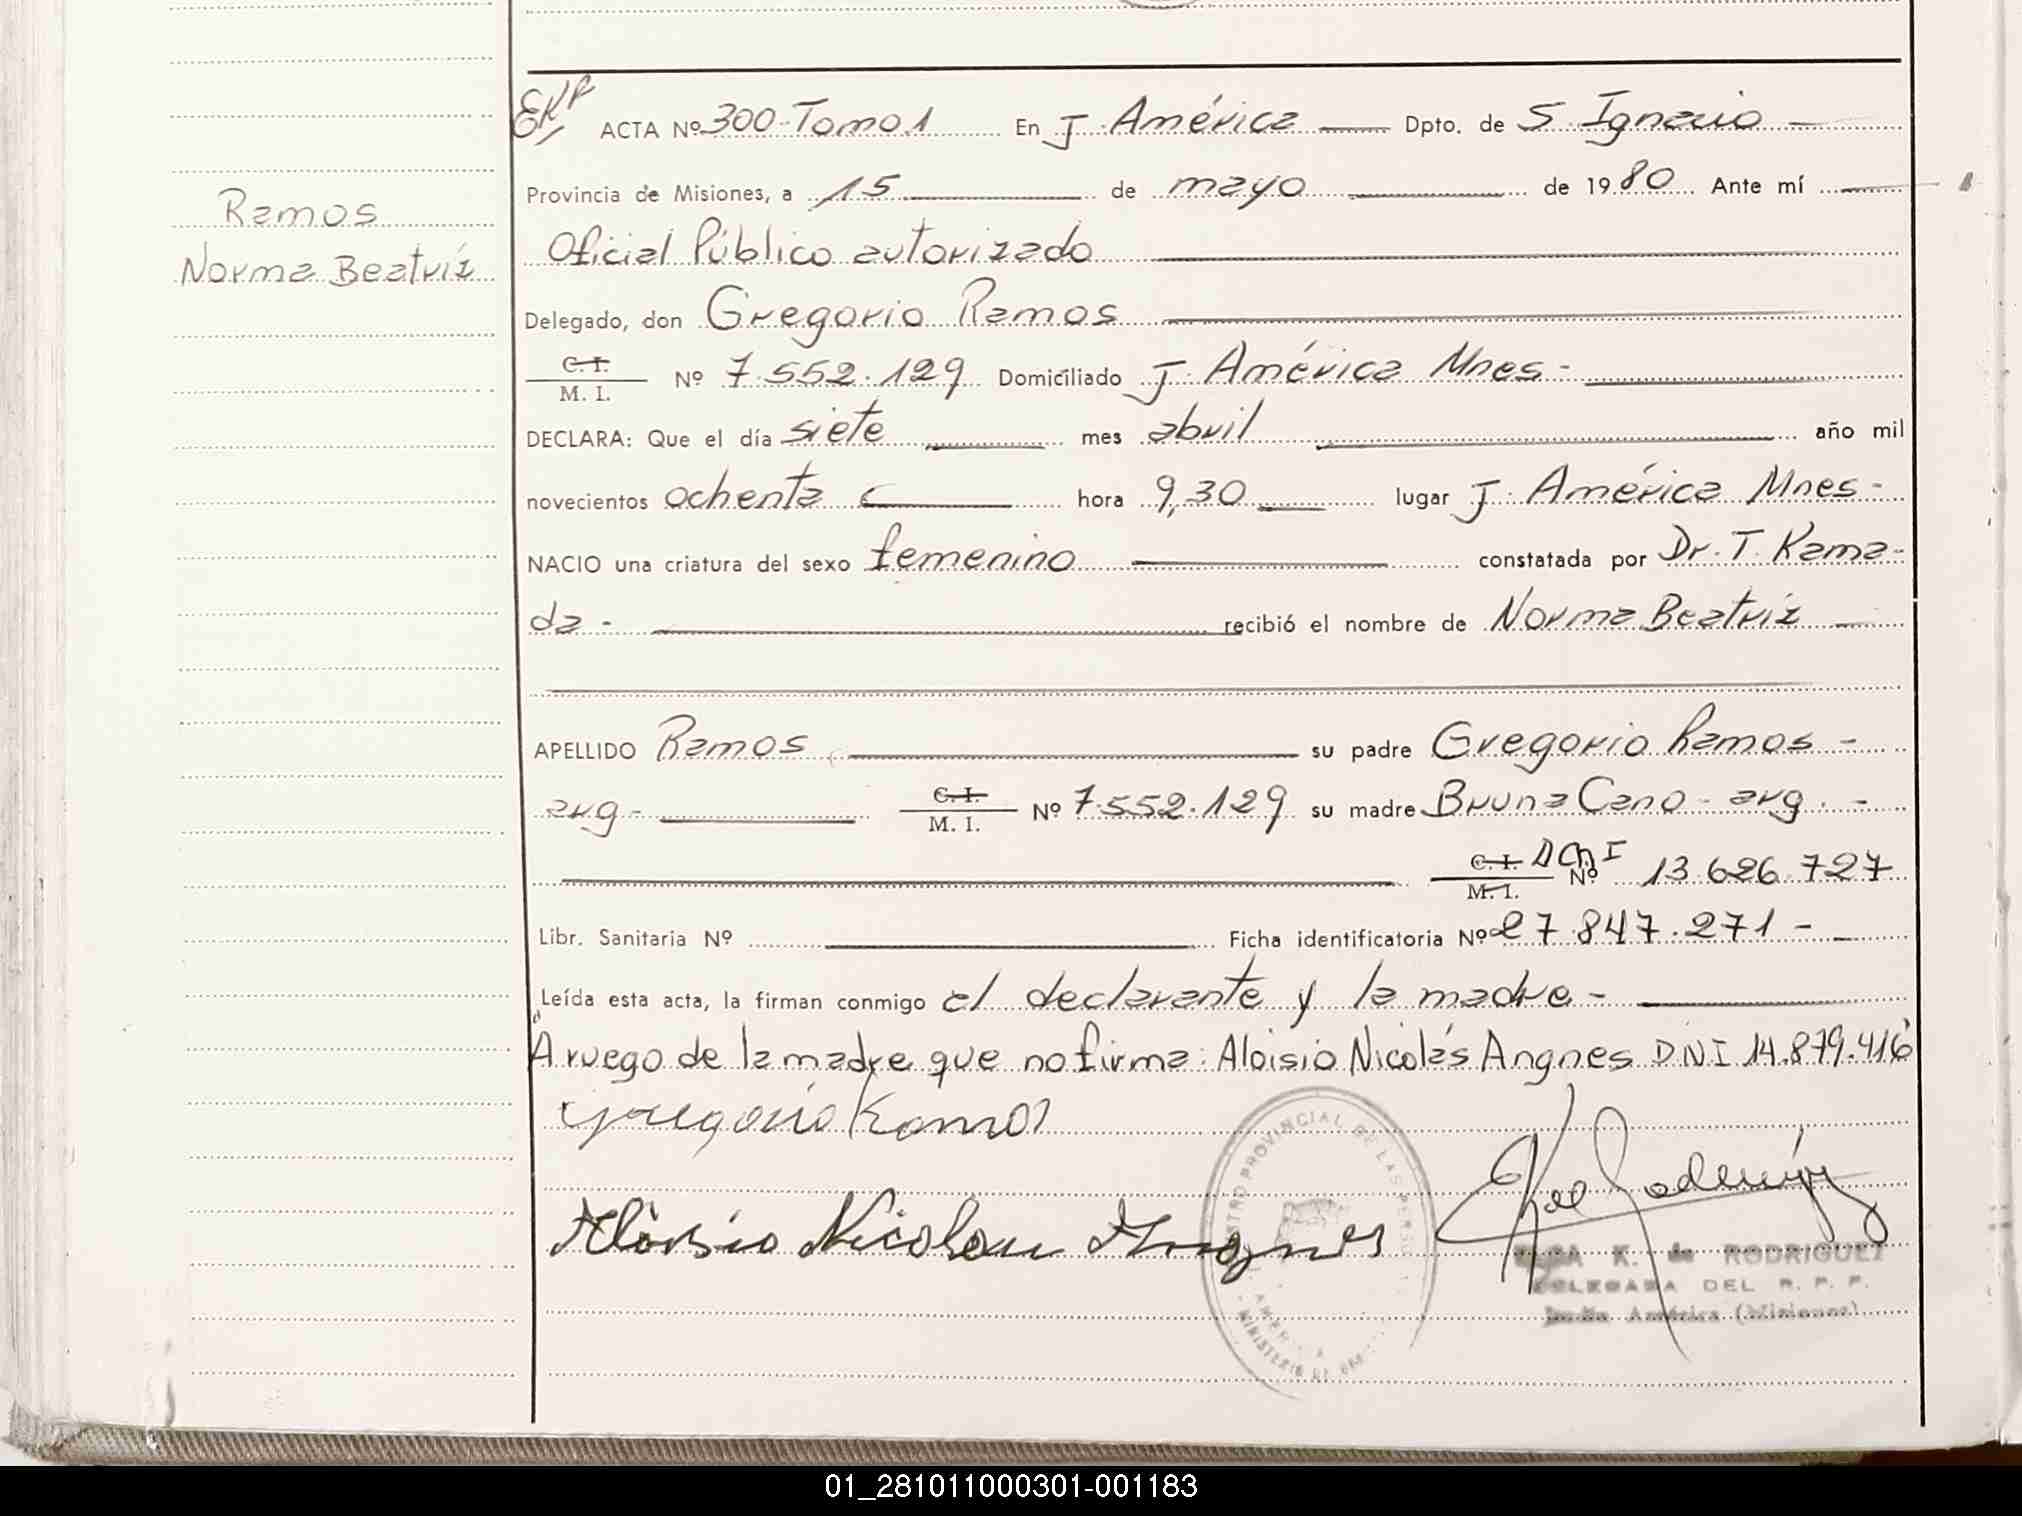 EXP ACTA Nº 300-Tomo 1 En J. América Dpto. de S. Ignacio
Provincia de Misiones, a 15 de mayo de 1980. Ante mí
Oficial Público autorizado
Ramos
Norma Beatriz
Delegado, don Gregorio Ramos
C. I. / M. I. Nº 7.552.129 Domiciliado J. América Mnes-
DECLARA: Que el día siete mes abril año mil
novecientos ochenta hora 9,30 lugar J. América Mnes-
NACIO una criatura del sexo femenino constatada por Dr. T. Kama-
da- recibió el nombre de Norma Beatriz
APELLIDO Ramos su padre Gregorio Ramos-
arg- C. I. / M. I. Nº 7.552.129 su madre Bruna Cano- arg.-
C. I. / M. I. Nº 13.626.727
Libr. Sanitaria Nº Ficha identificatoria Nº 27.847.271-
Leída esta acta, la firman conmigo el declarante y la madre-
A ruego de la madre que no firma: Aloisio Nicolás Angnes DNI 14.879.416
Gregorio Ramos
Aloisio Nicolau Angnes
K. de RODRIGUEZ
DELEGADA DEL R. P. P.
América (Misiones)
PROVINCIAL DE LAS PERSO
MINISTERIO DE
01_281011000301-001183